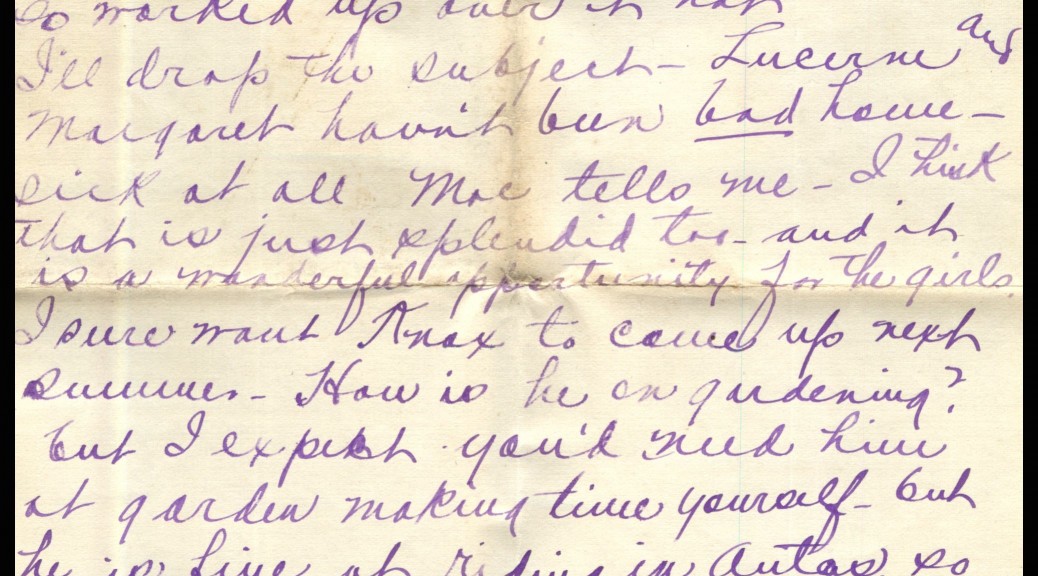 so worked up over it not
I'll drop the subject - Lucerne and
Margaret havn't been bad home -
sick at all Mae tells me - I think
that is just splendid too - and it
is a wonderful opportunity for the girls.
I sure want Knox to come up next
summer - How is he on gardening?
but I expect you'd need him
at garden making time yourself - but
he is fine at riding in autos so